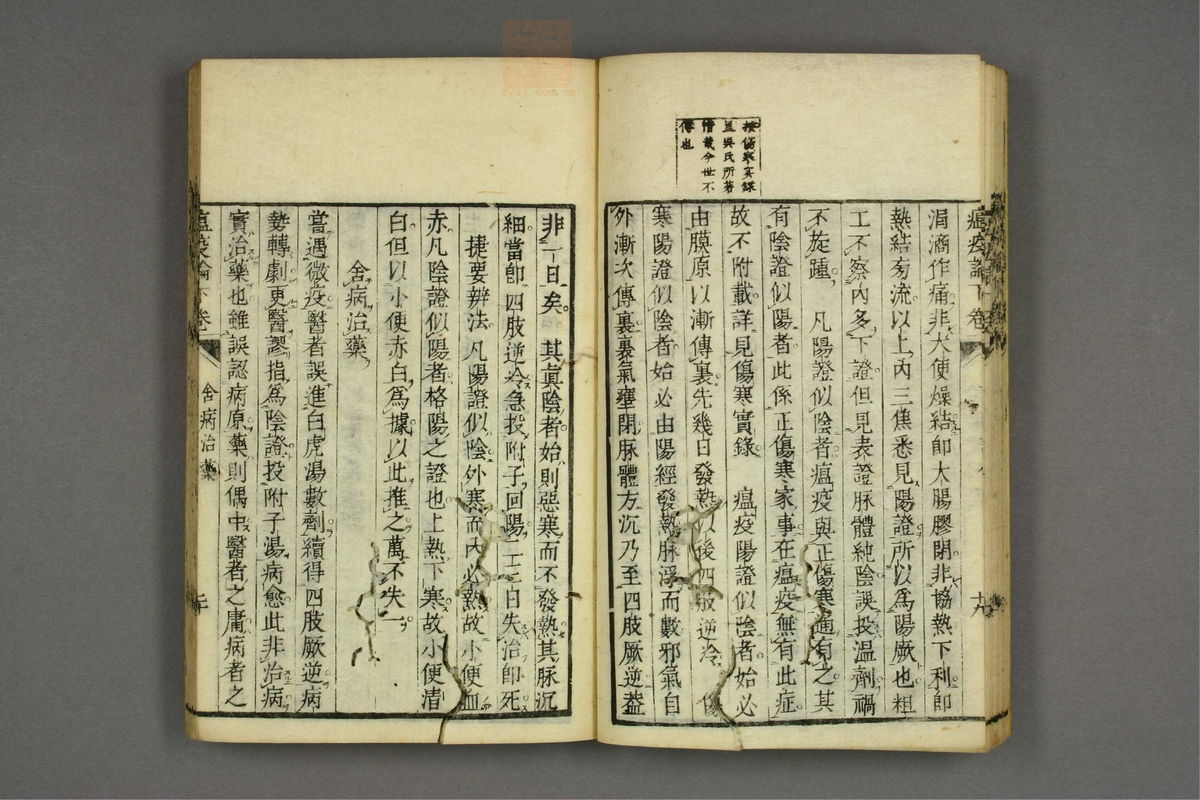 按傷寒實錄
且吳氏所著
惜哉今世不
傳也
瘟疫論下卷
十九
涓滴作痛非大便燥結即大腸膠閉非協熱下利即
熱結旁流以上內三焦悉見陽證所以為陽厥也粗
工不察內多下證但見表證脉體純陰誤投温劑禍
不旋踵 凡陽證似陰者瘟疫與正傷寒通有之其
有陰證似陽者此係正傷寒家事在瘟疫無有此症
故不附載詳見傷寒實錄 瘟疫陽證似陰者始必
由膜原以漸傳裏先幾日發熱以後四肢逆冷 傷
寒陽證似陰者始必由陽經發熱脉浮而數邪氣自
外漸次傳裏裏氣壅閉脉體方沉乃至四肢厥逆葢
非一日矣 其真陰者始則惡寒而不發熱其脉沉
細當即四肢逆冷急投附子回陽二三日失治即死
捷要辨法凡陽證似陰外寒而內必熱故小便血
赤凡陰證似陽者格陽之證也上熱下寒故小便清
白但以小便赤白為據以此推之萬不失一
舍病治藥
嘗遇微疫醫者誤進白虎湯數劑續得四肢厥逆病
勢轉劇更醫謬指為陰證投附子湯病愈此非治病
實治藥也雖誤認病原藥則偶中醫者之庸病者之
瘟疫論下卷
舍病治藥
二十